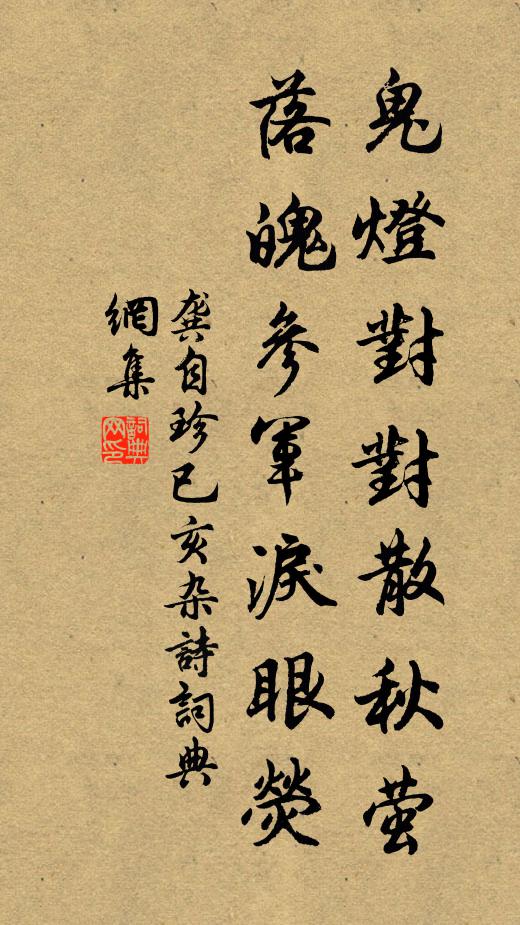 鬼燈對對散秋萤
落魄參軍淚眼熒
龔自珍己亥杂詩詞典
網集
詞典网印